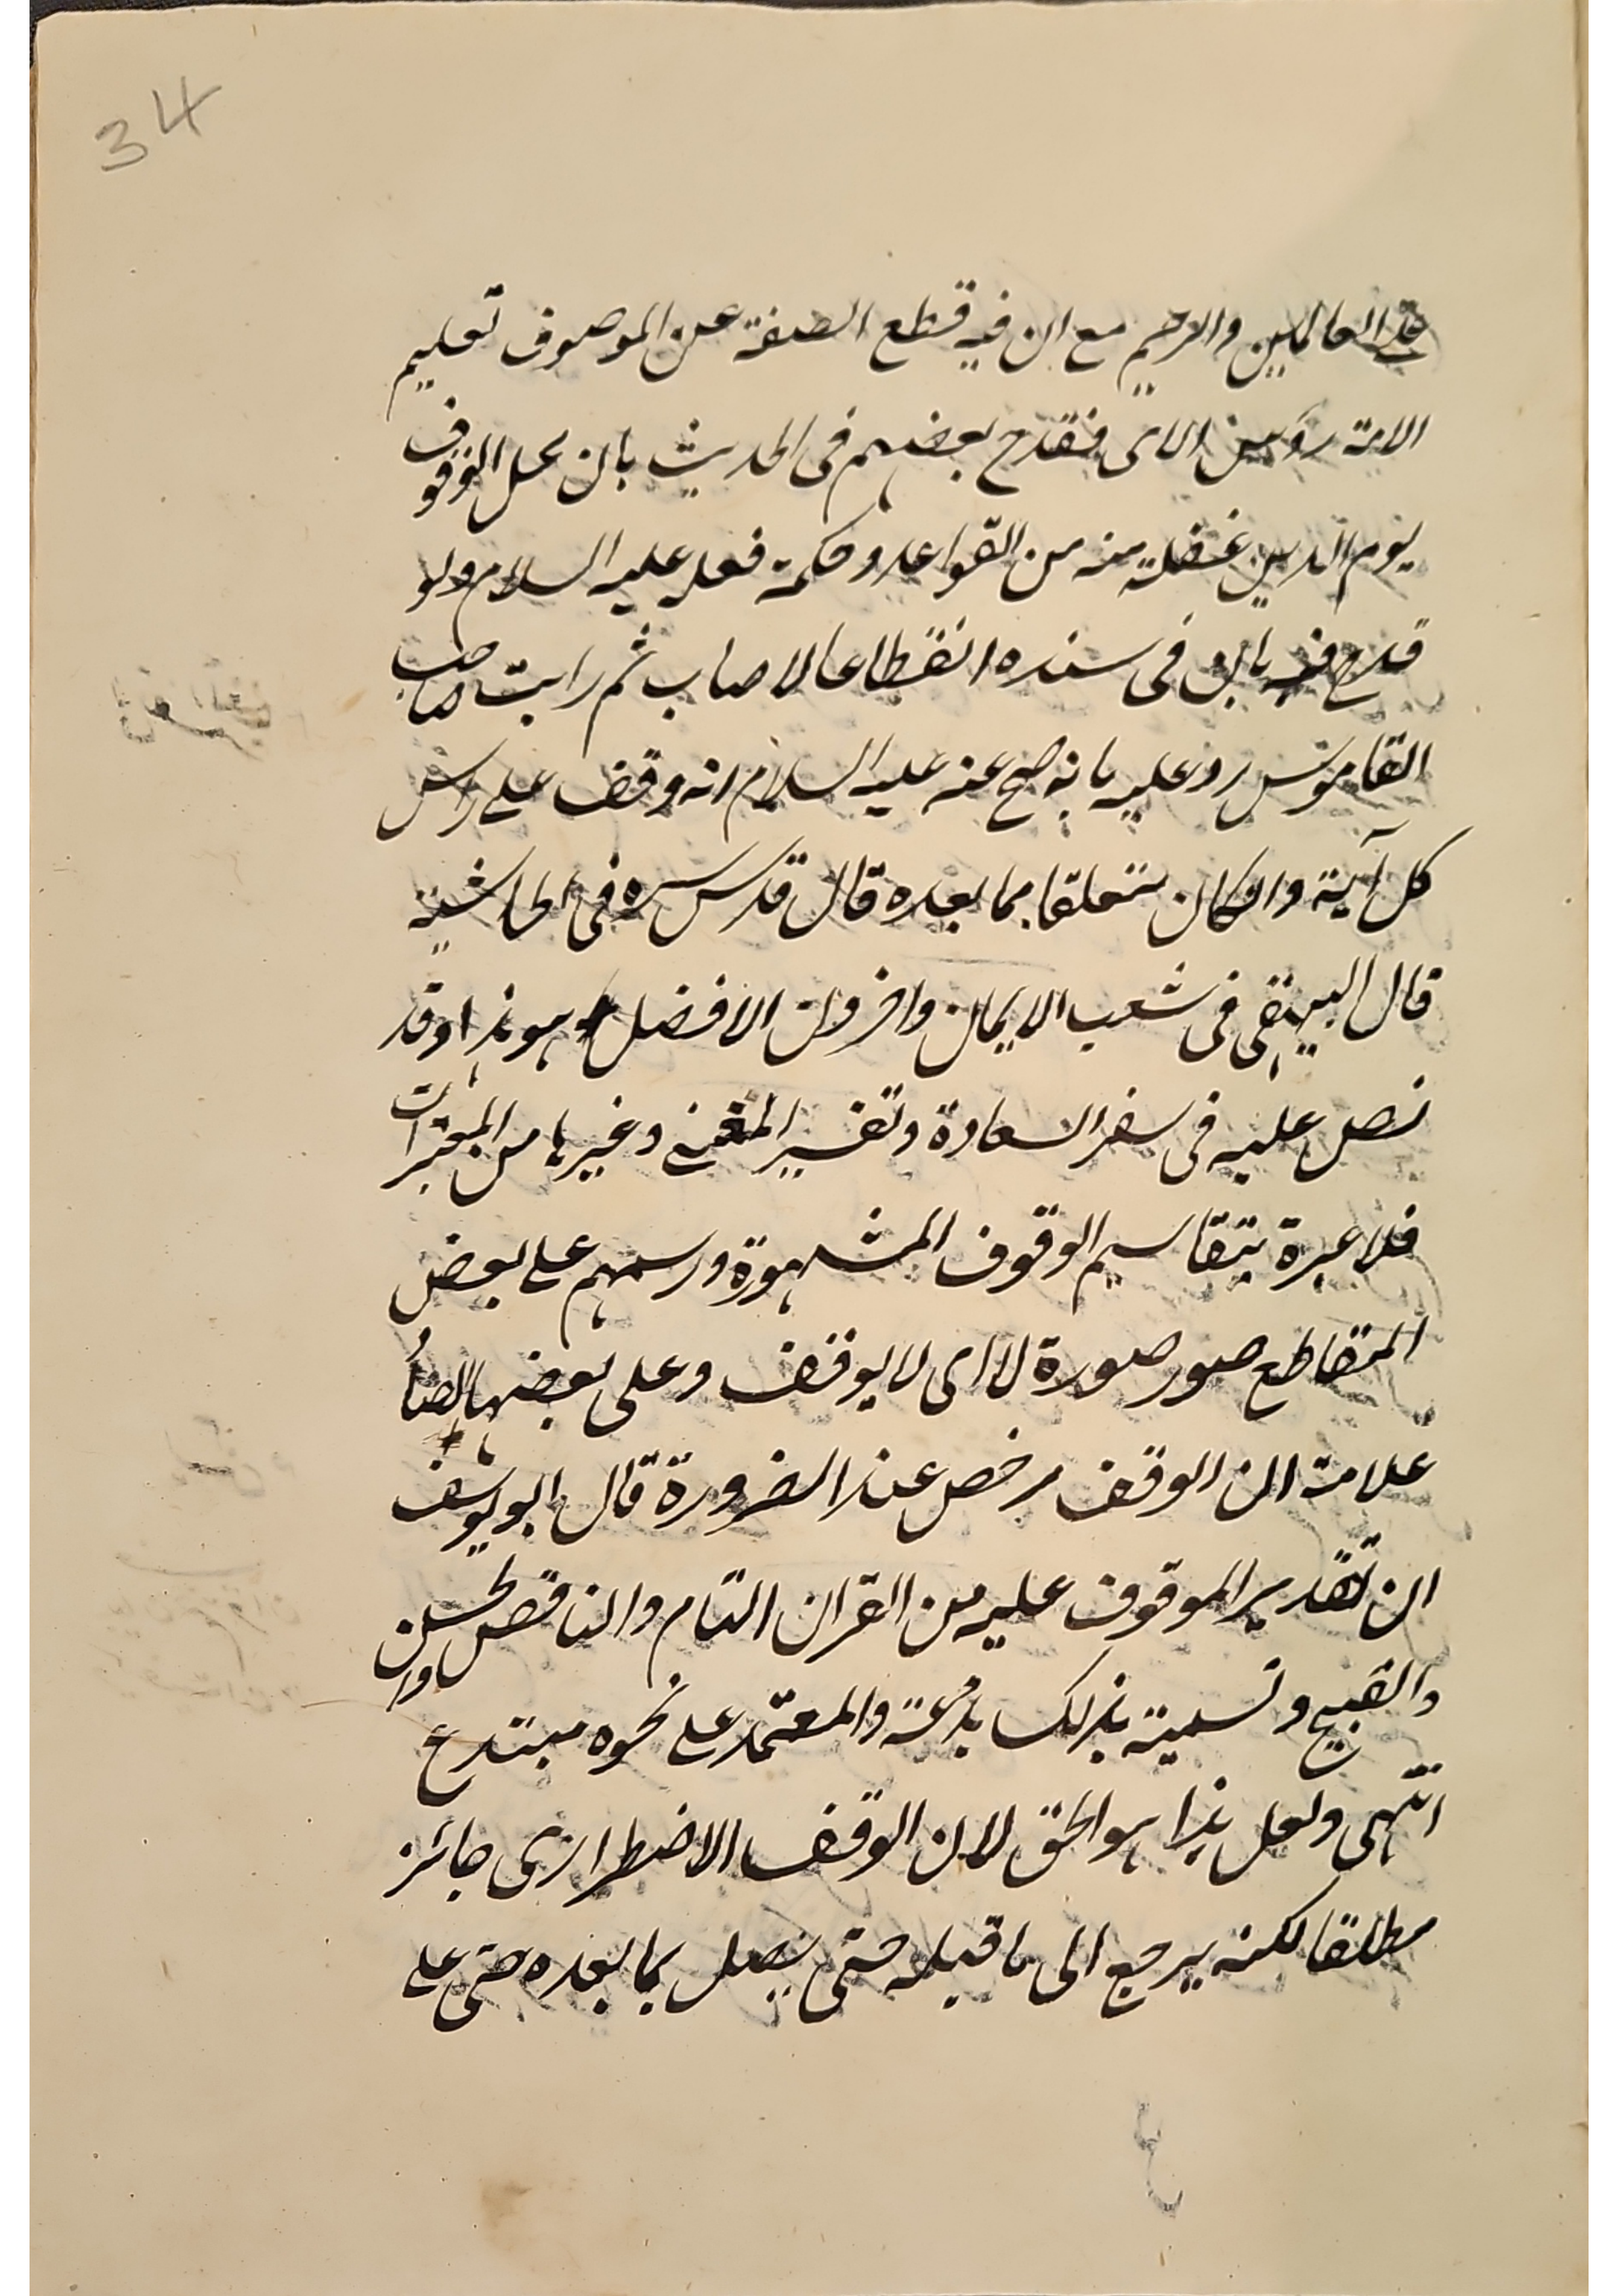 34
على العالمين والرحيم مع ان فيه قطع الصفة عن الموصوف تعليم
الامة رؤس الاى فقدح بعضهم فى الحديث بان محل الوقوف
يوم الدين غفلة منه من القواعد وحكمة فعله عليه السلام ولو
قدح فيه بان فى سنده انقطاعا لاصاب ثم رايت صاحب
القاموس رد عليه بانه صح عنه عليه السلام انه وقف على راس
كل آية وان كان متعلقا بما بعده قال قدس سره فى الحاشية
قال البيهقى فى شعب الايمان واخرون الافضل هو هذا وقد
نص عليه فى سفر السعادة وتفسير المغنى وغيرها من المعتبرات
فلا عبرة بتقاسيم الوقوف المشهورة ورسمهم على بعض
المقاطع صور صورة لا اى لا يوقف وعلى بعضها ايضاً
علامة ان الوقف مرخص عند الضرورة قال ابو يوسف
ان تقدير الموقوف عليه من القران التام والناقص والحسن
والقبيح وتسمية بذلك بدعة والمعتمد على نحوه مبتدع
انتهى ولعل هذا هو الحق لان الوقف الاضطرارى جائز
مطلقا لكنه يرجع الى ما قبله حتى يصل بما بعده حتى على